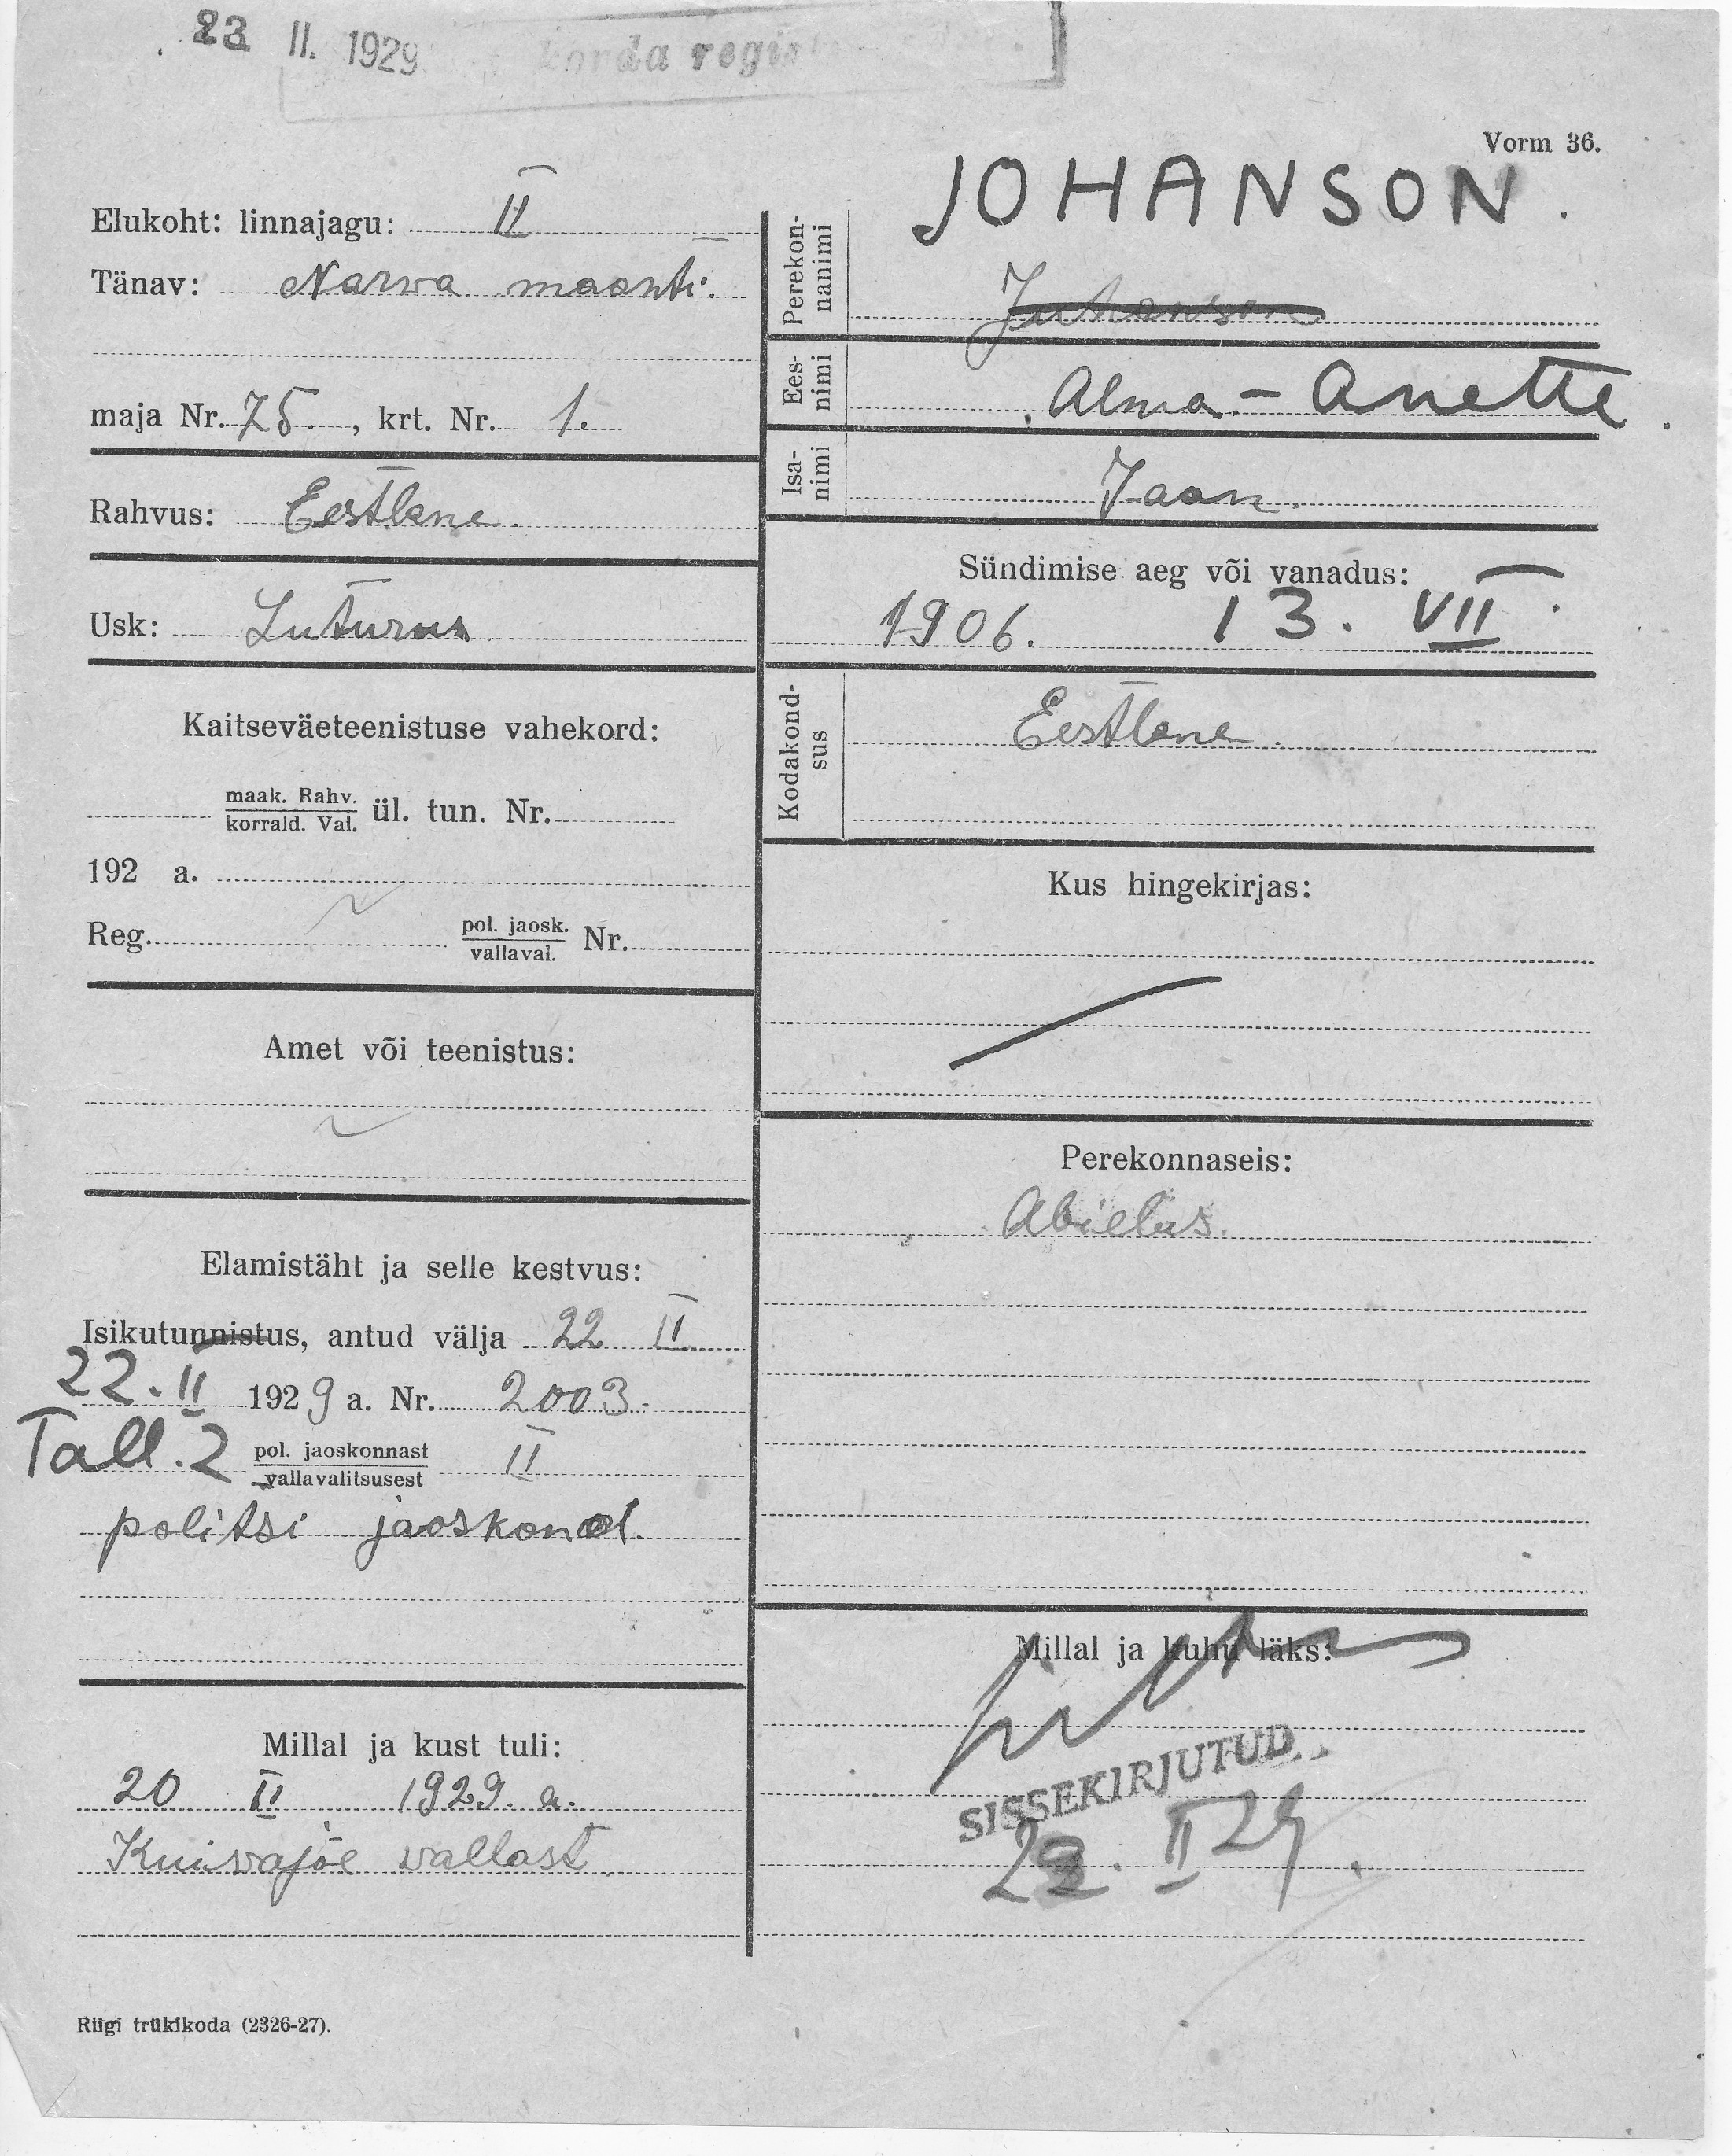 23 II. 1929
korda regis
Vorm 36.
Elukoht: linnajagu: II
Tänav: Narva maanti.
maja Nr. 75. , krt. Nr. 1.
Rahvus: Eestlane.
Usk: Luturus
Kaitseväeteenistuse vahekord:
maak. Rahv.
korrald. Val. ül. tun. Nr.
192 a.
Reg. pol. jaosk.
vallaval. Nr.
Amet või teenistus:
Elamistäht ja selle kestvus:
Isikutunnistus, antud välja 22 II
22. II 1929 a. Nr. 2003.
Tall. 2 pol. jaoskonnast II
vallavalitsusest
politsi jaoskond
Millal ja kust tuli:
20 II 1929. a.
Kuivajõe vallast
JOHANSON.
Perekonnanimi
Juhanson
Eesnimi Alma - Anette.
Isanimi Jaan.
Sündimise aeg või vanadus:
1906. 13. VII.
Kodakondsus Eestlane.
Kus hingekirjas:
Perekonnaseis:
Abielus.
Millal ja kuhu läks:
SISSEKIRJUTUD
II 29
Riigi trükikoda (2326-27).